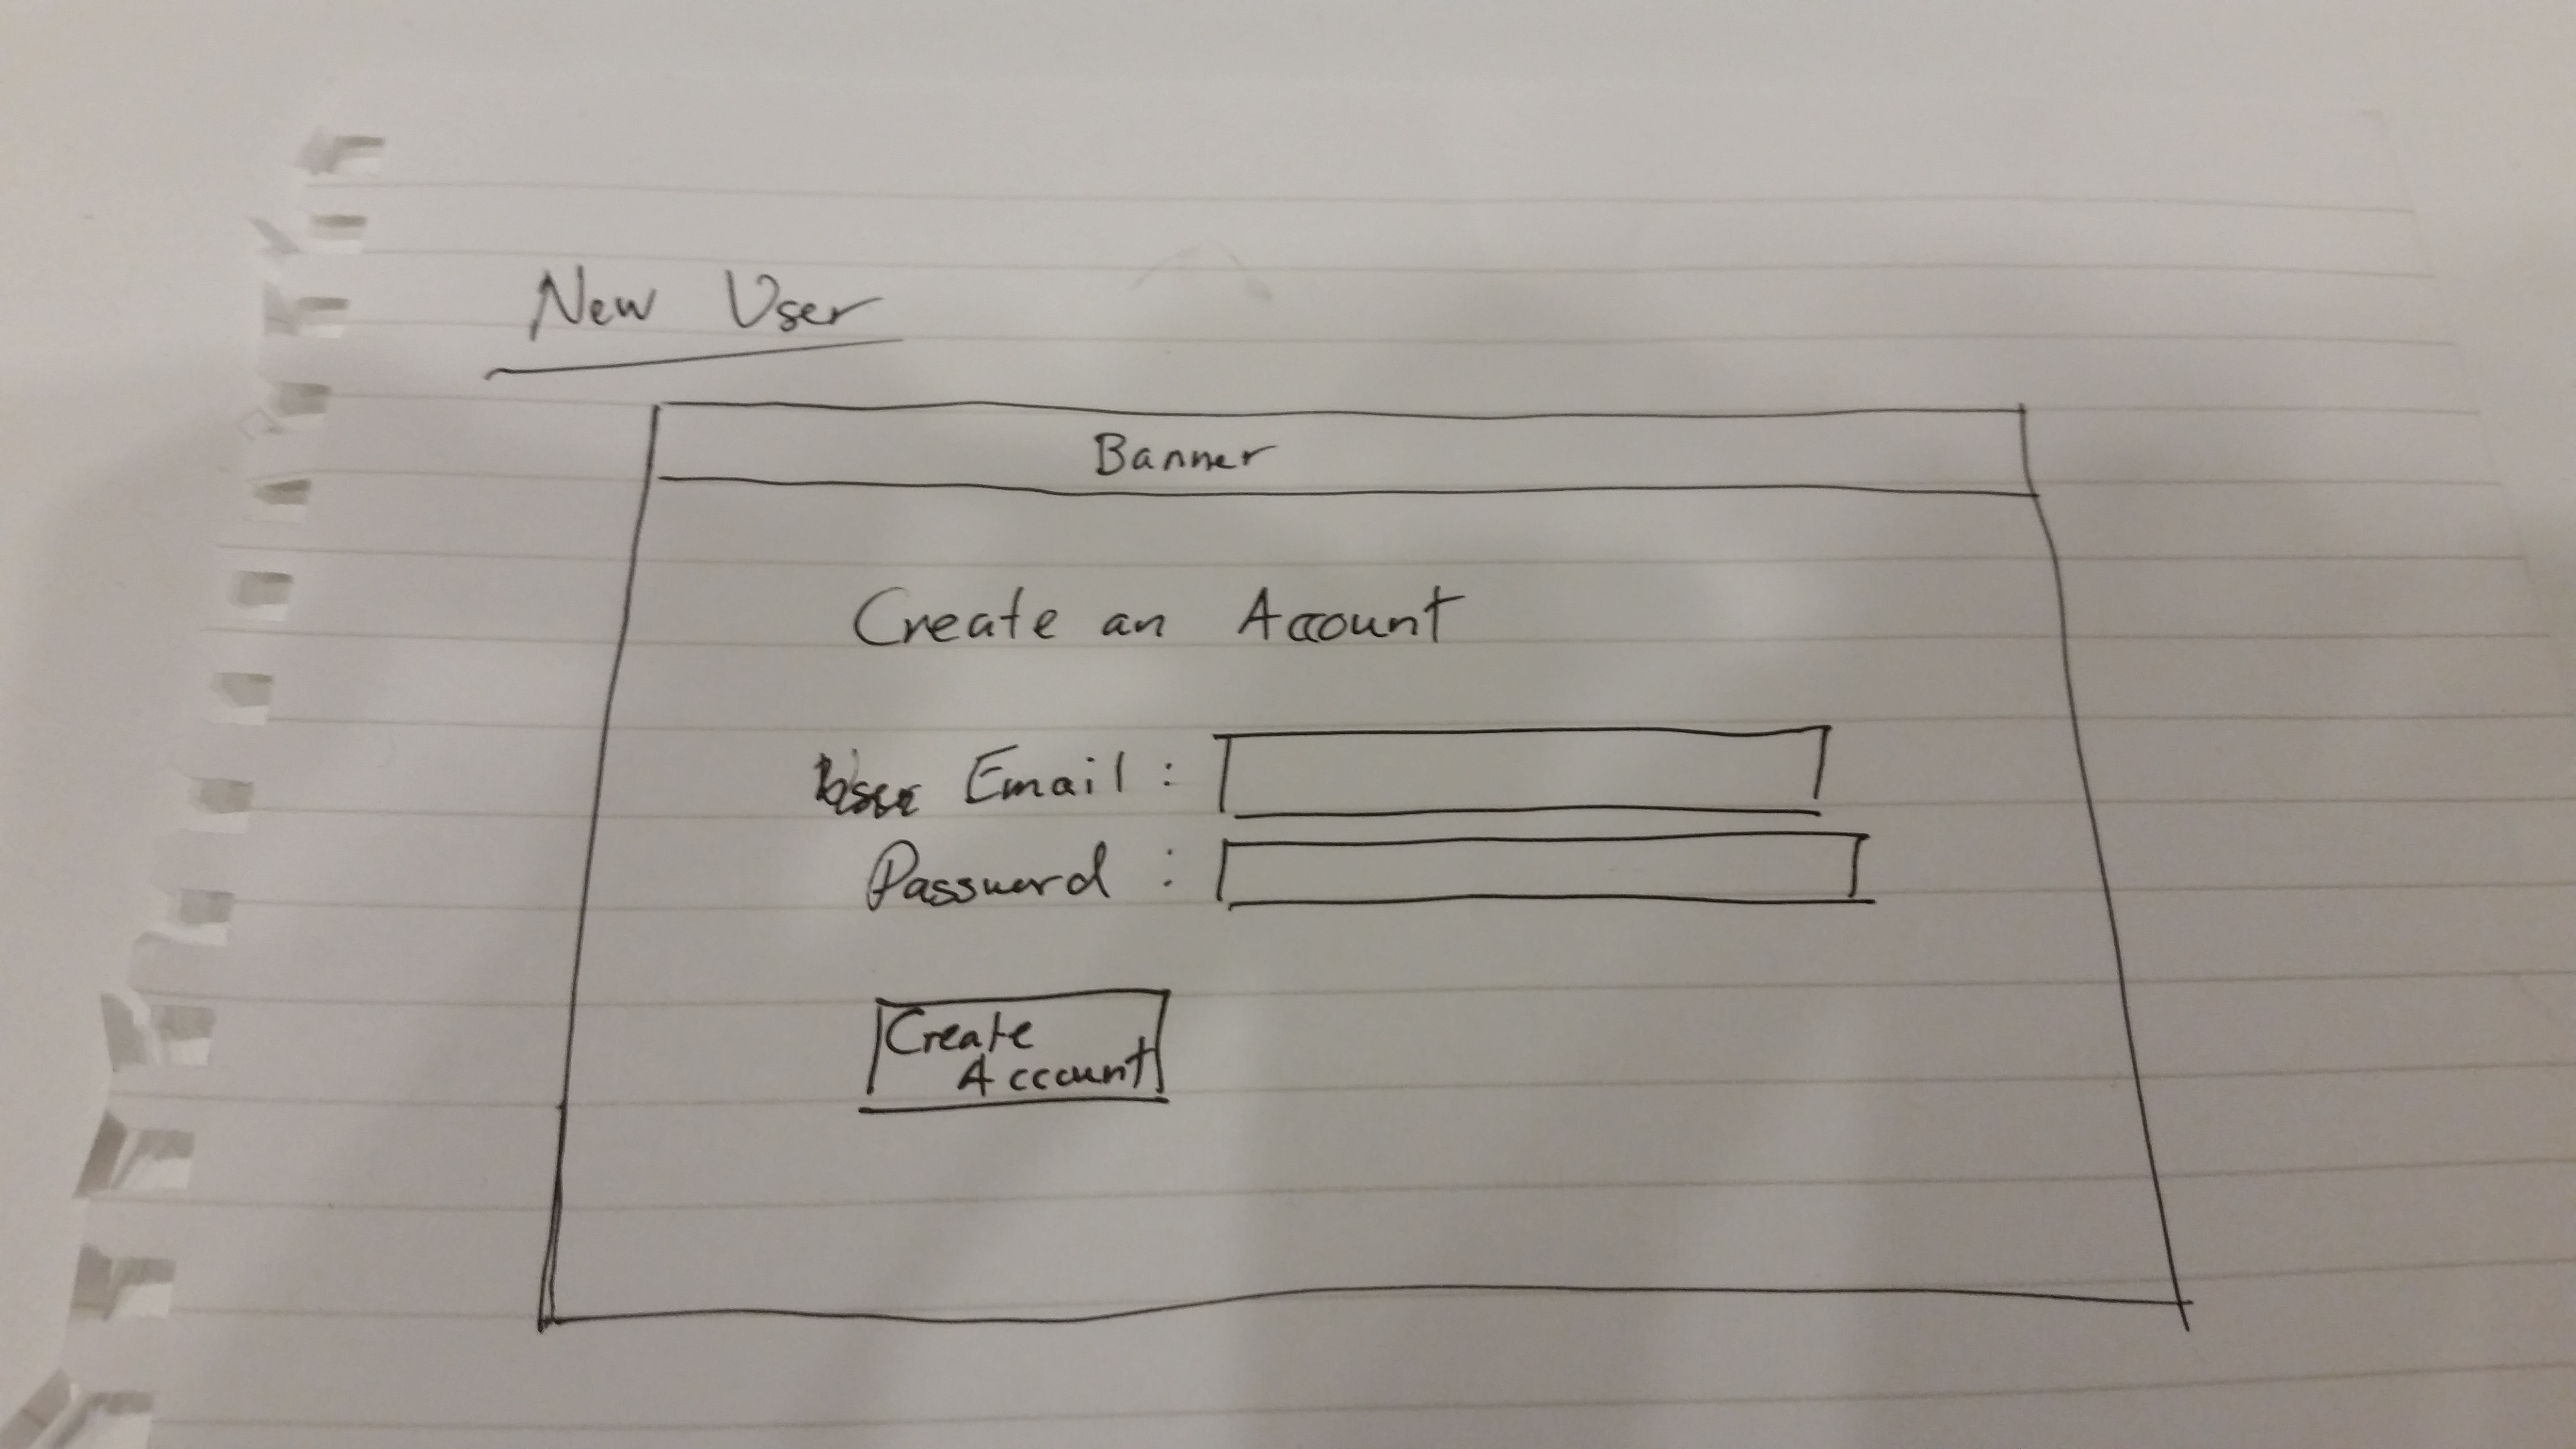 New User
Banner
Create an Account
User Email :
Password :
Create
Account